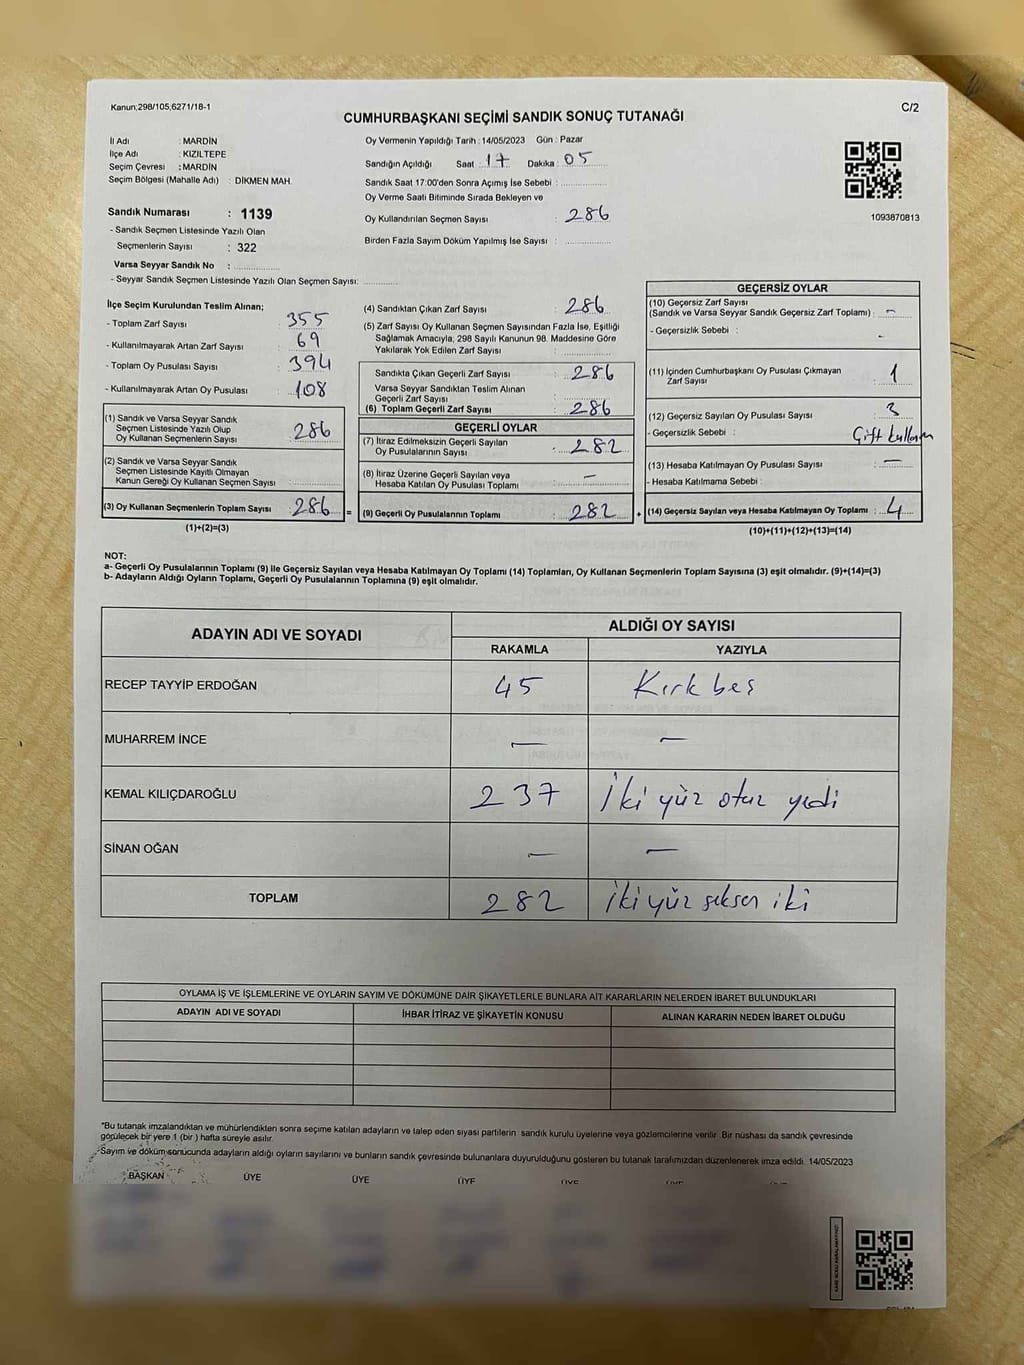 Kanun,298/105,6271/18-1
C/2
CUMHURBAŞKANI SEÇİMİ SANDIK SONUÇ TUTANAĞI
İl Adı : MARDİN
İlçe Adı : KIZILTEPE
Seçim Çevresi : MARDİN
Seçim Bölgesi (Mahalle Adı) : DİKMEN MAH.
Sandık Numarası : 1139
- Sandık Seçmen Listesinde Yazılı Olan
Seçmenlerin Sayısı : 322
Varsa Seyyar Sandık No :
- Seyyar Sandık Seçmen Listesinde Yazılı Olan Seçmen Sayısı:
Oy Vermenin Yapıldığı Tarih : 14/05/2023 Gün : Pazar
Sandığın Açıldığı Saat : 17 Dakika : 05
Sandık Saat 17:00'den Sonra Açımış İse Sebebi :
Oy Verme Saati Bitiminde Sırada Bekleyen ve
Oy Kullandırılan Seçmen Sayısı : 286
Birden Fazla Sayım Döküm Yapılmış İse Sayısı :
1093870813
İlçe Seçim Kurulundan Teslim Alınan;
- Toplam Zarf Sayısı : 355
- Kullanılmayarak Artan Zarf Sayısı : 69
- Toplam Oy Pusulası Sayısı : 394
- Kullanılmayarak Artan Oy Pusulası : 108
(1) Sandık ve Varsa Seyyar Sandık
Seçmen Listesinde Yazılı Olup
Oy Kullanan Seçmenlerin Sayısı : 286
(2) Sandık ve Varsa Seyyar Sandık
Seçmen Listesinde Kayıtlı Olmayan
Kanun Gereği Oy Kullanan Seçmen Sayısı :
(3) Oy Kullanan Seçmenlerin Toplam Sayısı : 286 =
(1)+(2)=(3)
(4) Sandıktan Çıkan Zarf Sayısı : 286
(5) Zarf Sayısı Oy Kullanan Seçmen Sayısından Fazla İse, Eşitliği
Sağlamak Amacıyla, 298 Sayılı Kanunun 98. Maddesine Göre
Yakılarak Yok Edilen Zarf Sayısı :
Sandıkta Çıkan Geçerli Zarf Sayısı : 286
Varsa Seyyar Sandıktan Teslim Alınan
Geçerli Zarf Sayısı :
(6) Toplam Geçerli Zarf Sayısı : 286
GEÇERLİ OYLAR
(7) İtiraz Edilmeksizin Geçerli Sayılan
Oy Pusulalarının Sayısı : 282
(8) İtiraz Üzerine Geçerli Sayılan veya
Hesaba Katılan Oy Pusulası Toplamı : —
(9) Geçerli Oy Pusulalarının Toplamı : 282 +
GEÇERSİZ OYLAR
(10) Geçersiz Zarf Sayısı
(Sandık ve Varsa Seyyar Sandık Geçersiz Zarf Toplamı) : -
- Geçersizlik Sebebi : -
(11) İçinden Cumhurbaşkanı Oy Pusulası Çıkmayan
Zarf Sayısı : 1
(12) Geçersiz Sayılan Oy Pusulası Sayısı : 3
- Geçersizlik Sebebi : Çift kullanım
(13) Hesaba Katılmayan Oy Pusulası Sayısı : —
- Hesaba Katılmama Sebebi :
(14) Geçersiz Sayılan veya Hesaba Katılmayan Oy Toplamı : 4
(10)+(11)+(12)+(13)=(14)
NOT:
a- Geçerli Oy Pusulalarının Toplamı (9) ile Geçersiz Sayılan veya Hesaba Katılmayan Oy Toplamı (14) Toplamları, Oy Kullanan Seçmenlerin Toplam Sayısına (3) eşit olmalıdır. (9)+(14)=(3)
b- Adayların Aldığı Oyların Toplamı, Geçerli Oy Pusulalarının Toplamına (9) eşit olmalıdır.
ADAYIN ADI VE SOYADI ALDIĞI OY SAYISI
RAKAMLA YAZIYLA
RECEP TAYYİP ERDOĞAN 45 Kırk beş
MUHARREM İNCE — —
KEMAL KILIÇDAROĞLU 237 İki yüz otuz yedi
SİNAN OĞAN — —
TOPLAM 282 İki yüz seksen iki
OYLAMA İŞ VE İŞLEMLERİNE VE OYLARIN SAYIM VE DÖKÜMÜNE DAİR ŞİKAYETLERLE BUNLARA AİT KARARLARIN NELERDEN İBARET BULUNDUKLARI
ADAYIN ADI VE SOYADI İHBAR İTİRAZ VE ŞİKAYETİN KONUSU ALINAN KARARIN NEDEN İBARET OLDUĞU
*Bu tutanak imzalandıktan ve mühürlendikten sonra seçime katılan adayların ve talep eden siyasi partilerin sandık kurulu üyelerine veya gözlemcilerine verilir. Bir nüshası da sandık çevresinde
görülecek bir yere 1 (bir ) hafta süreyle asılır.
Sayım ve döküm sonucunda adayların aldığı oyların sayılarını ve bunların sandık çevresinde bulunanlara duyurulduğunu gösteren bu tutanak tarafımızdan düzenlenerek imza edildi. 14/05/2023
BAŞKAN ÜYE ÜYE ÜYE ÜYE